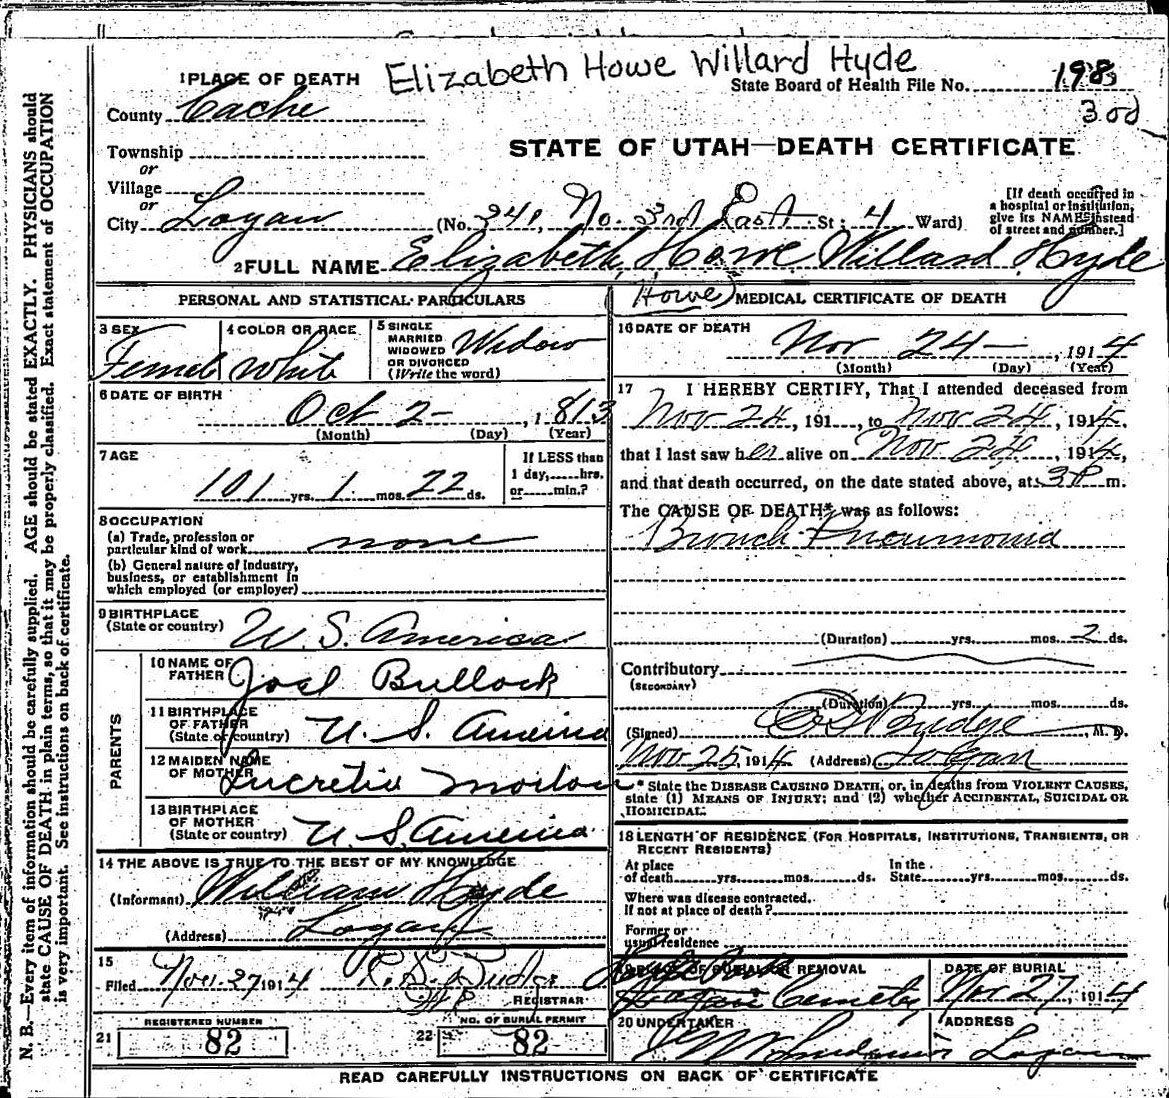 Elizabeth Howe Willard Hyde
1 PLACE OF DEATH
State Board of Health File No. 198
County Cache
3 od
Township
STATE OF UTAH—DEATH CERTIFICATE
or
Village
or
City Logan (No. 341, No. 3rd East St; 4 Ward)
[If death occurred in
a hospital or institution,
give its NAME instead
of street and number.]
2 FULL NAME Elizabeth Howe Willard Hyde
(Howe)
PERSONAL AND STATISTICAL PARTICULARS
3 SEX
Female
4 COLOR OR RACE
White
5 SINGLE
MARRIED
WIDOWED
OR DIVORCED
(Write the word)
Widow
6 DATE OF BIRTH
Oct 2- , 1813
(Month) (Day) (Year)
7 AGE
101 yrs. 1 mos. 22 ds.
If LESS than
1 day,.....hrs.
or.....min.?
8 OCCUPATION
(a) Trade, profession or
particular kind of work none
(b) General nature of industry,
business, or establishment in
which employed (or employer)
9 BIRTHPLACE
(State or country) U. S. America
PARENTS
10 NAME OF
FATHER Joel Bullock
11 BIRTHPLACE
OF FATHER
(State or country) U. S. America
12 MAIDEN NAME
OF MOTHER Lucretia
13 BIRTHPLACE
OF MOTHER
(State or country) U S America
14 THE ABOVE IS TRUE TO THE BEST OF MY KNOWLEDGE
(Informant) William Hyde
(Address) Logan
15
Filed Nov. 27 1914
REGISTRAR
21 REGISTERED NUMBER
82
22 NO. OF BURIAL PERMIT
82
MEDICAL CERTIFICATE OF DEATH
16 DATE OF DEATH
Nov 24 — , 1914
(Month) (Day) (Year)
17 I HEREBY CERTIFY, That I attended deceased from
Nov 24, 191...., to Nov 24, 1914,
that I last saw her alive on Nov 24, 1914,
and that death occurred, on the date stated above, at 3 P m.
The CAUSE OF DEATH* was as follows:
Bronch Pneumonia
(Duration) yrs. mos. 2 ds.
Contributory
(SECONDARY)
(Duration) yrs. mos. ds.
(Signed) Budge, M. D.
Nov 25, 1914 (Address) Logan
* State the DISEASE CAUSING DEATH, or, in deaths from VIOLENT CAUSES,
state (1) MEANS OF INJURY; and (2) whether ACCIDENTAL, SUICIDAL OR
HOMICIDAL.
18 LENGTH OF RESIDENCE (FOR HOSPITALS, INSTITUTIONS, TRANSIENTS, OR
RECENT RESIDENTS)
At place
of death yrs. mos. ds.
In the
State yrs. mos. ds.
Where was disease contracted.
If not at place of death?
Former or
usual residence
19 PLACE OF BURIAL OR REMOVAL
Cemetery
DATE OF BURIAL
Nov 27, 1914
20 UNDERTAKER
ADDRESS
Logan
READ CAREFULLY INSTRUCTIONS ON BACK OF CERTIFICATE
N. B.—Every item of information should be carefully supplied. AGE should be stated EXACTLY. PHYSICIANS should
state CAUSE OF DEATH in plain terms, so that it may be properly classified. Exact statement of OCCUPATION
is very important. See instructions on back of certificate.